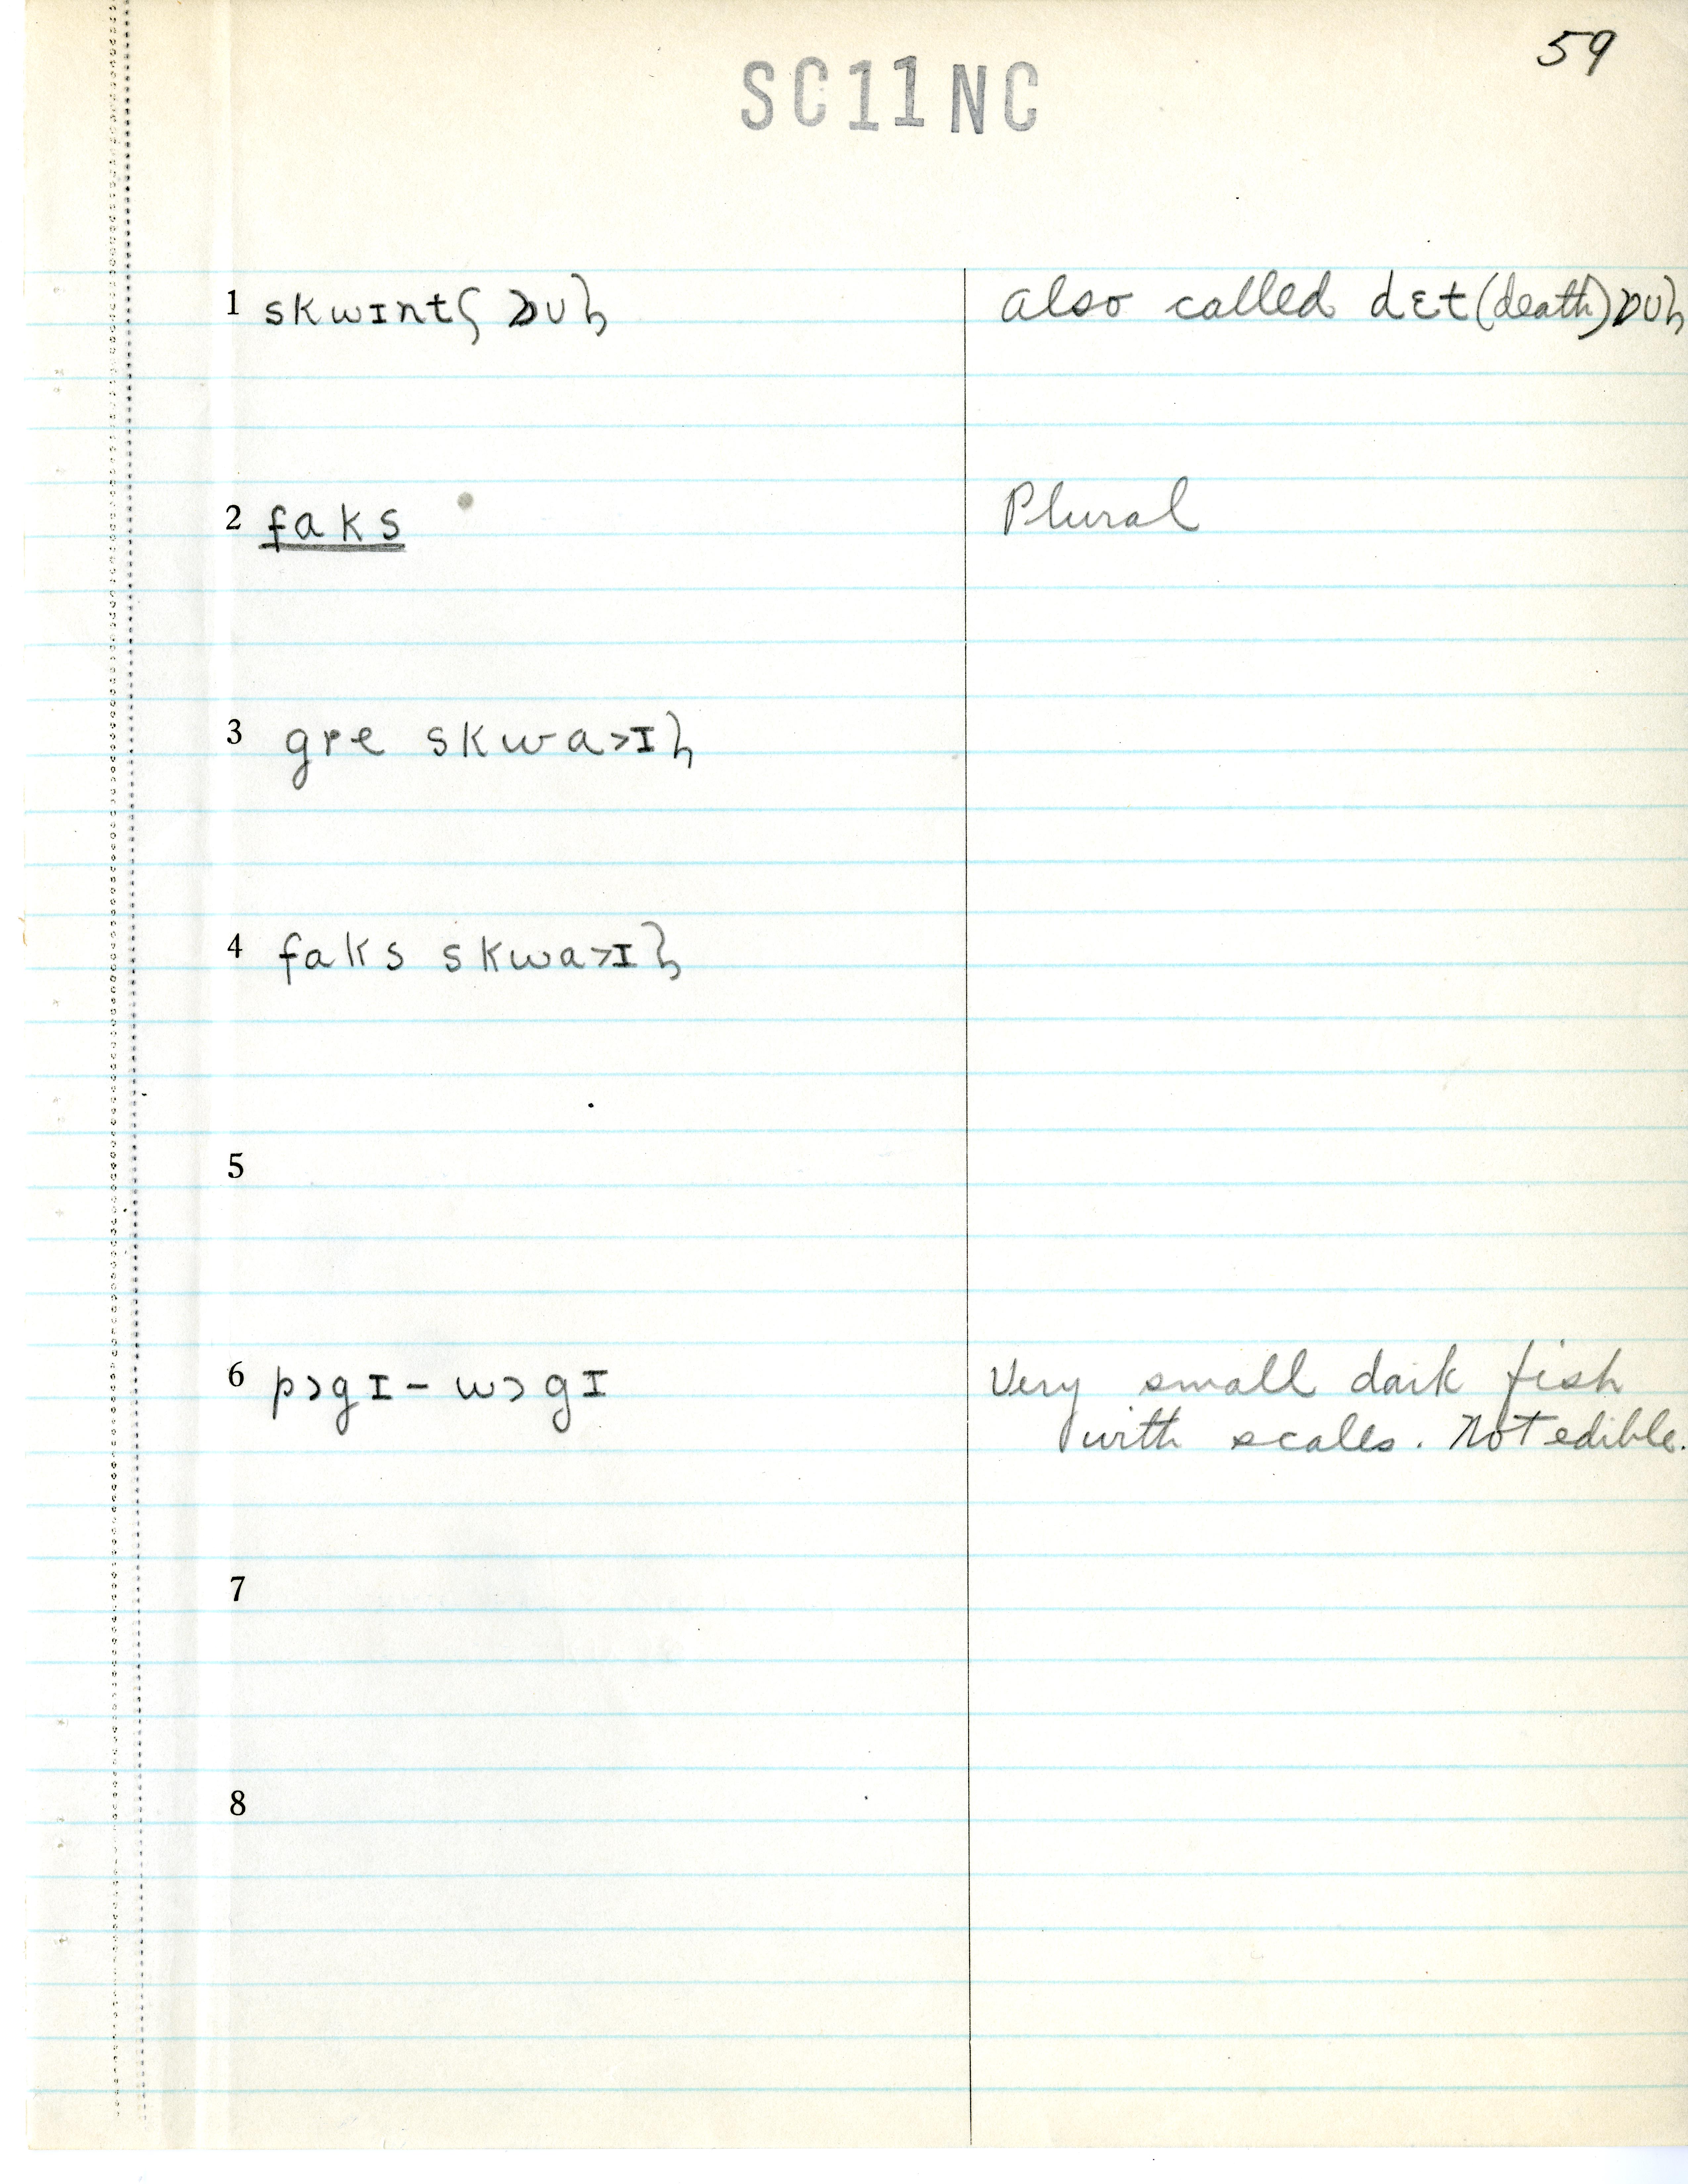 59
SC11NC
1 skwɪntʃ ꭣuꞎ also called dɛt (death)
2 faks Plural
3 gre skwa>ɪɦ
4 faks skwa>ɪɦ
5
6 pɔgɪ - wɔgɪ Very small dark fish
with scales. Not edible.
7
8